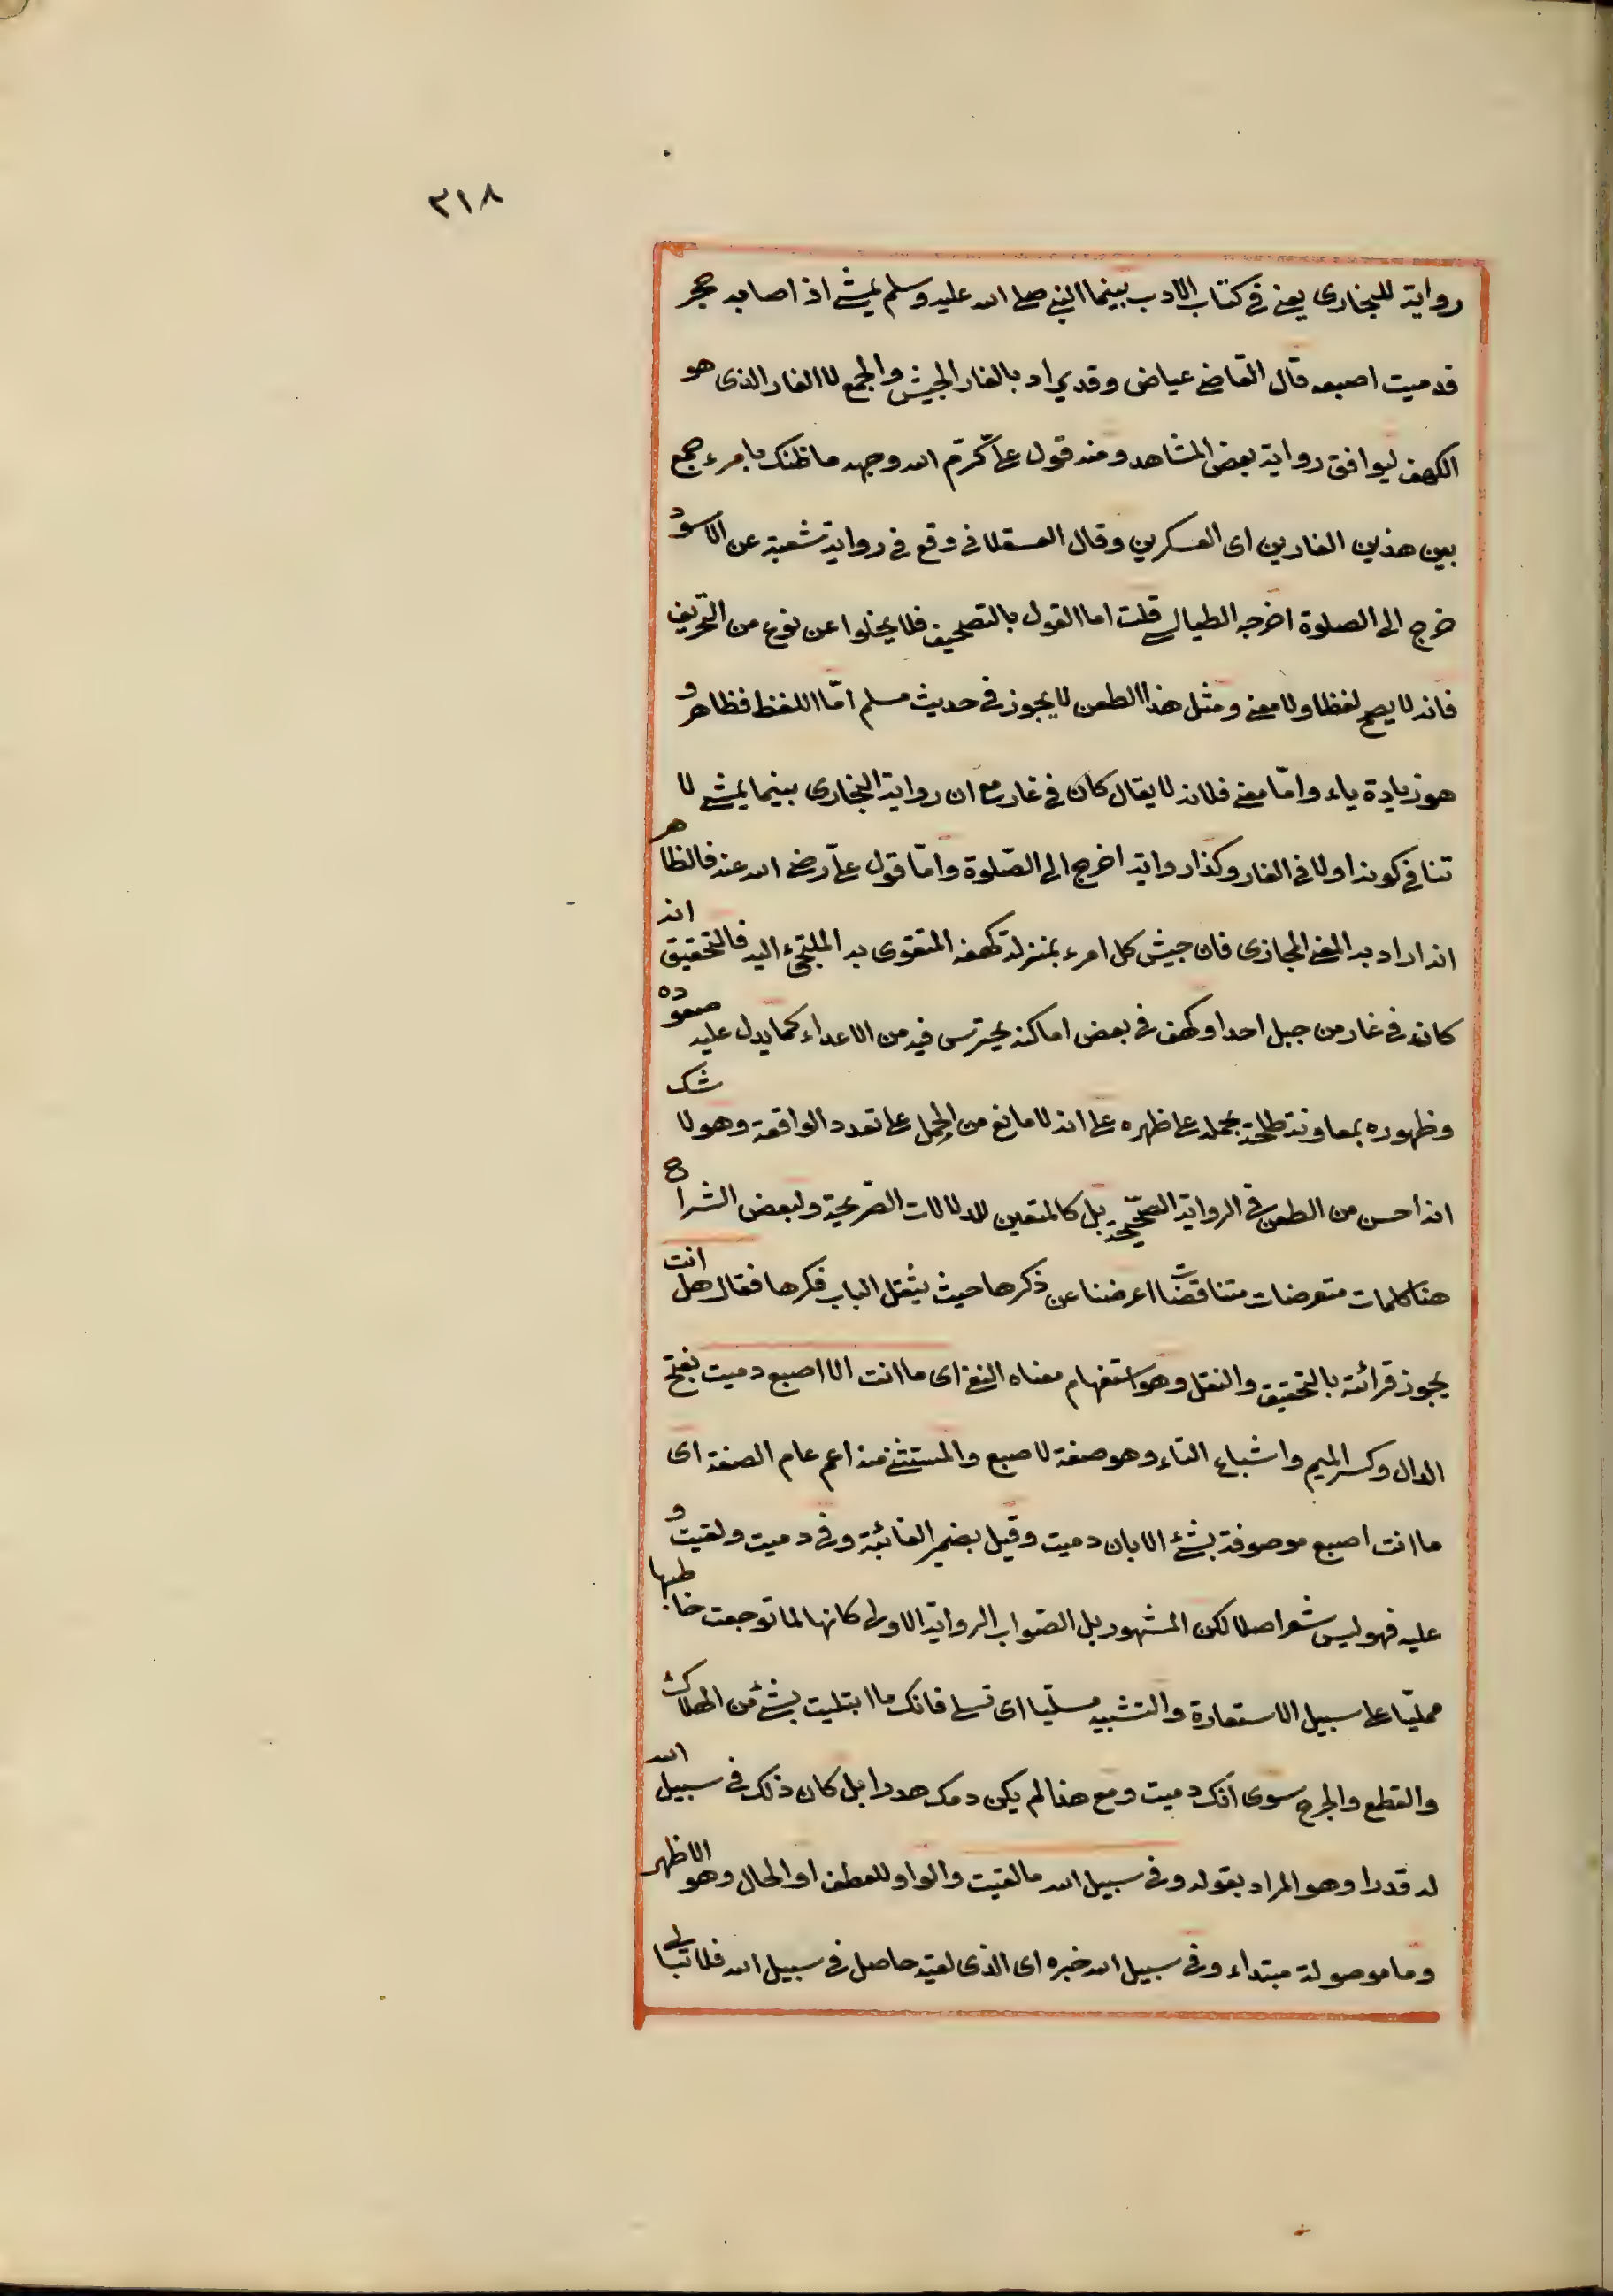 ٣١٨
رواية للبخارى يعنى فى كتاب الادب بينما النبى صلى الله عليه وسلم يمشى اذ اصابه حجر
فدميت اصبعه قال القاضى عياض وقد يراد بالغار الجيش والجمع لا الغار الذى هو
الكهف ليوافق رواية بعض المشاهد ومنه قول علىّ كرّم الله وجهه ما ظنك بامرء جمع
بين هذين الغارين اى العسكرين وقال العسقلانى وقع فى رواية شعبة عن الاسود
خرج الى الصلوة اخرجه الطيالسى قلت اما القول بالتصحيف فلا يخلوا عن نوع من التحريف
فانه لا يصح لفظا ولا معنى ومثل هذا الطعن لا يجوز فى حديث مسلم امّا اللفظ فظاهر و
هو زيادة ياء وامّا معنى فلانه لا يقال كان فى غار مع ان رواية البخارى بينما يمشى لا
تنافى كونه اولا فى الغار وكذا رواية اخرج الى الصّلوة وامّا قول علىّ رضى الله عنه فالظاهر
انه اراد به المعنى المجازى فان جيش كل امرء بمنزلة كهفه المتقوى به الملتجىء اليه فالتحقيق انه
كان فى غار من جبل احد او كهف فى بعض اماكنه يحترس فيه من الاعداء كما يدل عليه صعوده
وظهوره بمعاونة طلحة بحمله على ظهره على انه لا مانع من الحمل على تعدد الواقعة وهو لا شك
انه احسن من الطعن فى الرواية الصّحيحة بل كالمتعين للدلالات الصّريحة ولبعض الشراح
هنا كلمات متعرضات متناقضات اعرضنا عن ذكرها حيث يثقل الباب فكرها فقال هل انت
يجوز قرائته بالتحقيق والنقل وهو استفهام معناه النفى اى ما انت الا اصبع دميت بفتح
الدال وكسر الميم واشباع التاء وهو صفة لاصبع والمستثنى منه اعم عام الصفة اى
ما انت اصبع موصوفة بشئ الا بان دميت وقيل بضمير الغائبة وفى دميت ولقيت و
عليه فهو ليس شعرا اصلا لكن المشهور بل الصّواب الرواية الاولى كانها لما توجعت خاطبها
ممليّا على سبيل الاستعارة والتشبيه مسلّيا اى تسلى فانك ما ابتليت بشئ من الهلاك
والقطع والجرح سوى انك دميت ومع هذا لم يكن دمك هدرا بل كان ذلك فى سبيل الله
له قدرا وهو المراد بقوله وفى سبيل الله ما لقيت والواو للعطف او الحال وهو الاظهر
وما موصولة مبتداء وفى سبيل الله خبره اى الذى لقيته حاصل فى سبيل الله فلا تبالى